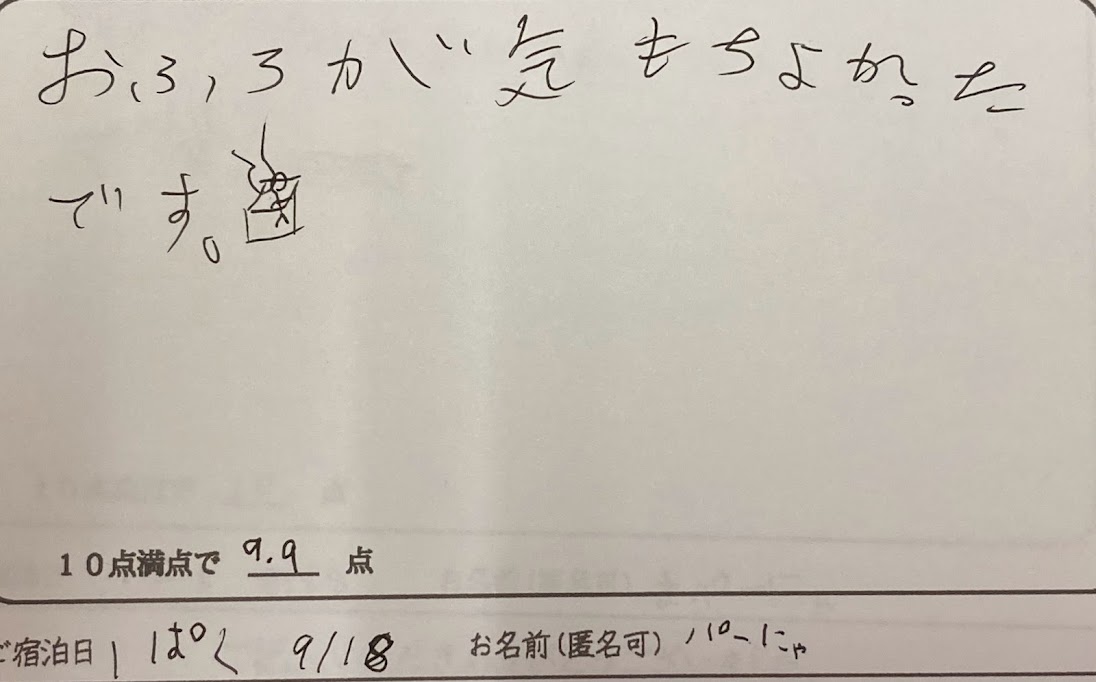 おふろが気もちよかった
です。
10点満点で 9.9 点
ご宿泊日 1ぱく 9/18 お名前(匿名可) パーにゃ